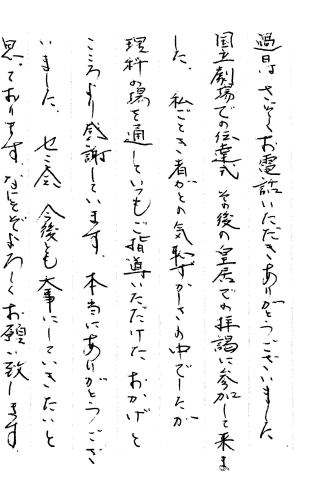 過日は さっそくお電話いただきありがとうございました
国立劇場での伝達式 その後の皇居での拝謁に参加して来ま
した。私ごとき者がとの気恥ずかしさの中でしたが
理科の場を通していつもご指導いただけた おかげと
こころより感謝しています。本当にありがとうござ
いました。ゼミ会 今後も大事にしていきたいと
思っております。なにとぞよろしくお願い致します。